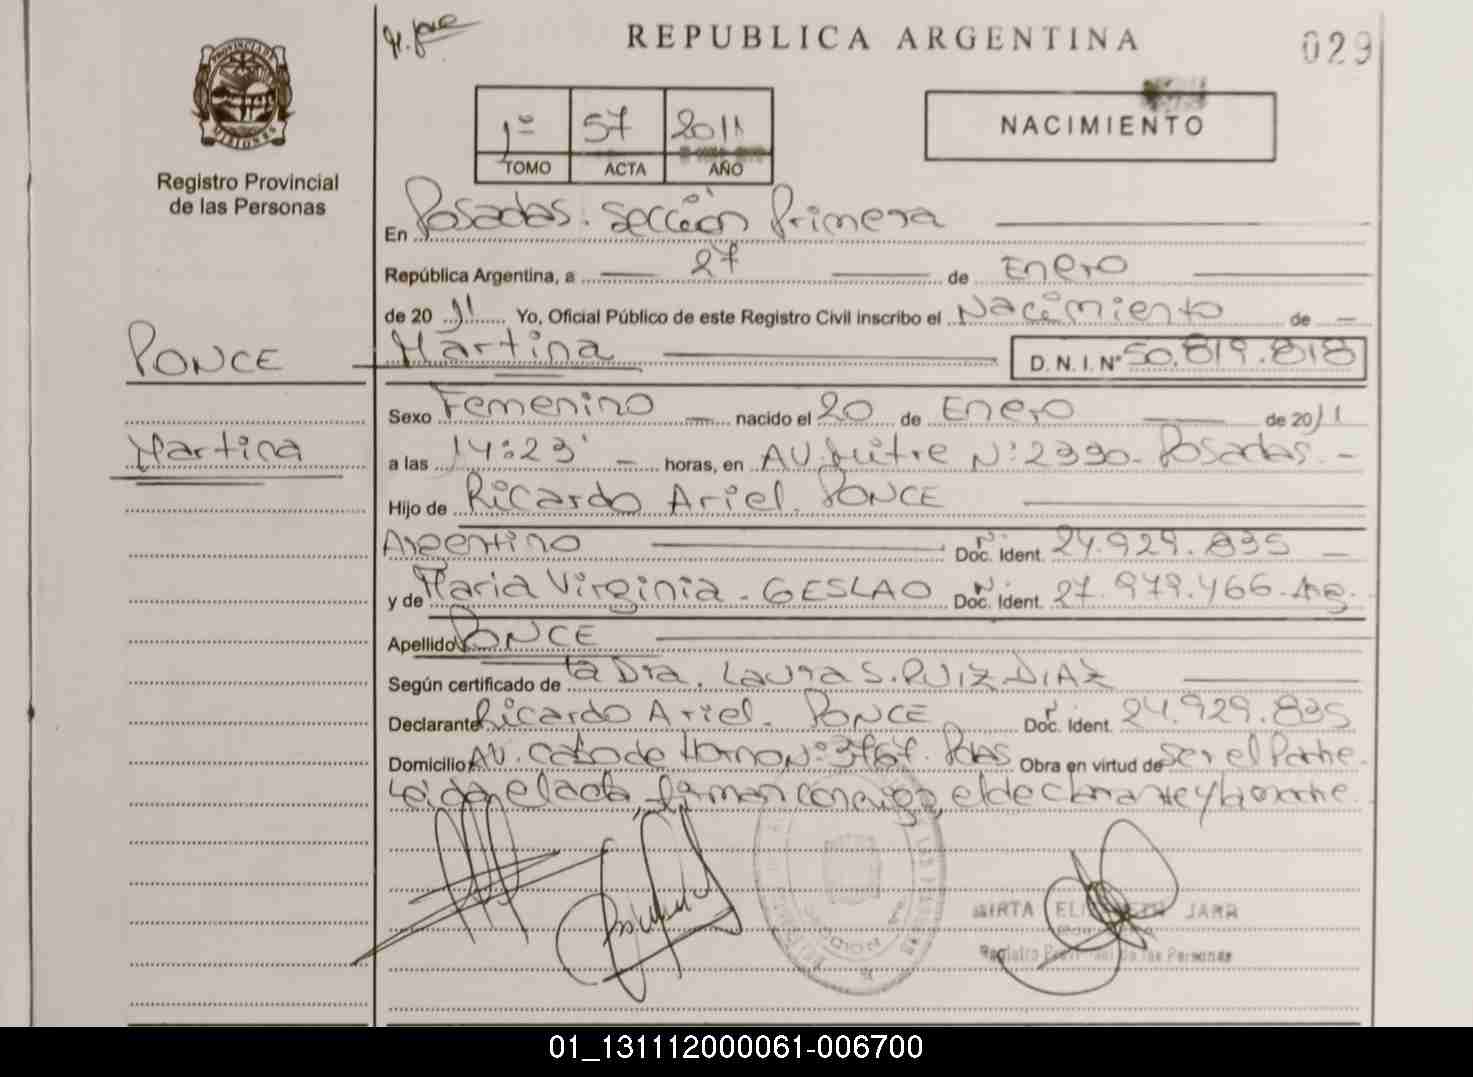 REPUBLICA ARGENTINA
029
PROVINCIA DE MISIONES
Registro Provincial
de las Personas
1º 57 2011
TOMO ACTA AÑO
NACIMIENTO
En Posadas. Sección Primera
República Argentina, a 27 de Enero
de 2011 Yo, Oficial Público de este Registro Civil inscribo el Nacimiento de
PONCE
Martina D. N. I. Nº 50.819.818
Martina
Sexo Femenino nacido el 20 de Enero de 2011
a las 14:23' horas, en AV. Mitre Nº 2390 - Posadas. -
Hijo de Ricardo Ariel. PONCE
Argentino Doc. Ident. Nº 24.929.835
y de Maria Virginia - GESLAO Doc. Ident. Nº 27.979.466 - Arg.
Apellido PONCE
Según certificado de la Dra. Laura S. RUIZ DIAZ
Declarante Ricardo Ariel. PONCE Doc. Ident. Nº 24.929.835
Domicilio AV. Cabo de Hornos Nº 3767. Pdas Obra en virtud de Ser el Padre.
Leida el acta, firman conmigo, el declarante y la madre.
MIRTA ELIZABETH JARA
Registro Provincial de las Personas
01_131112000061-006700